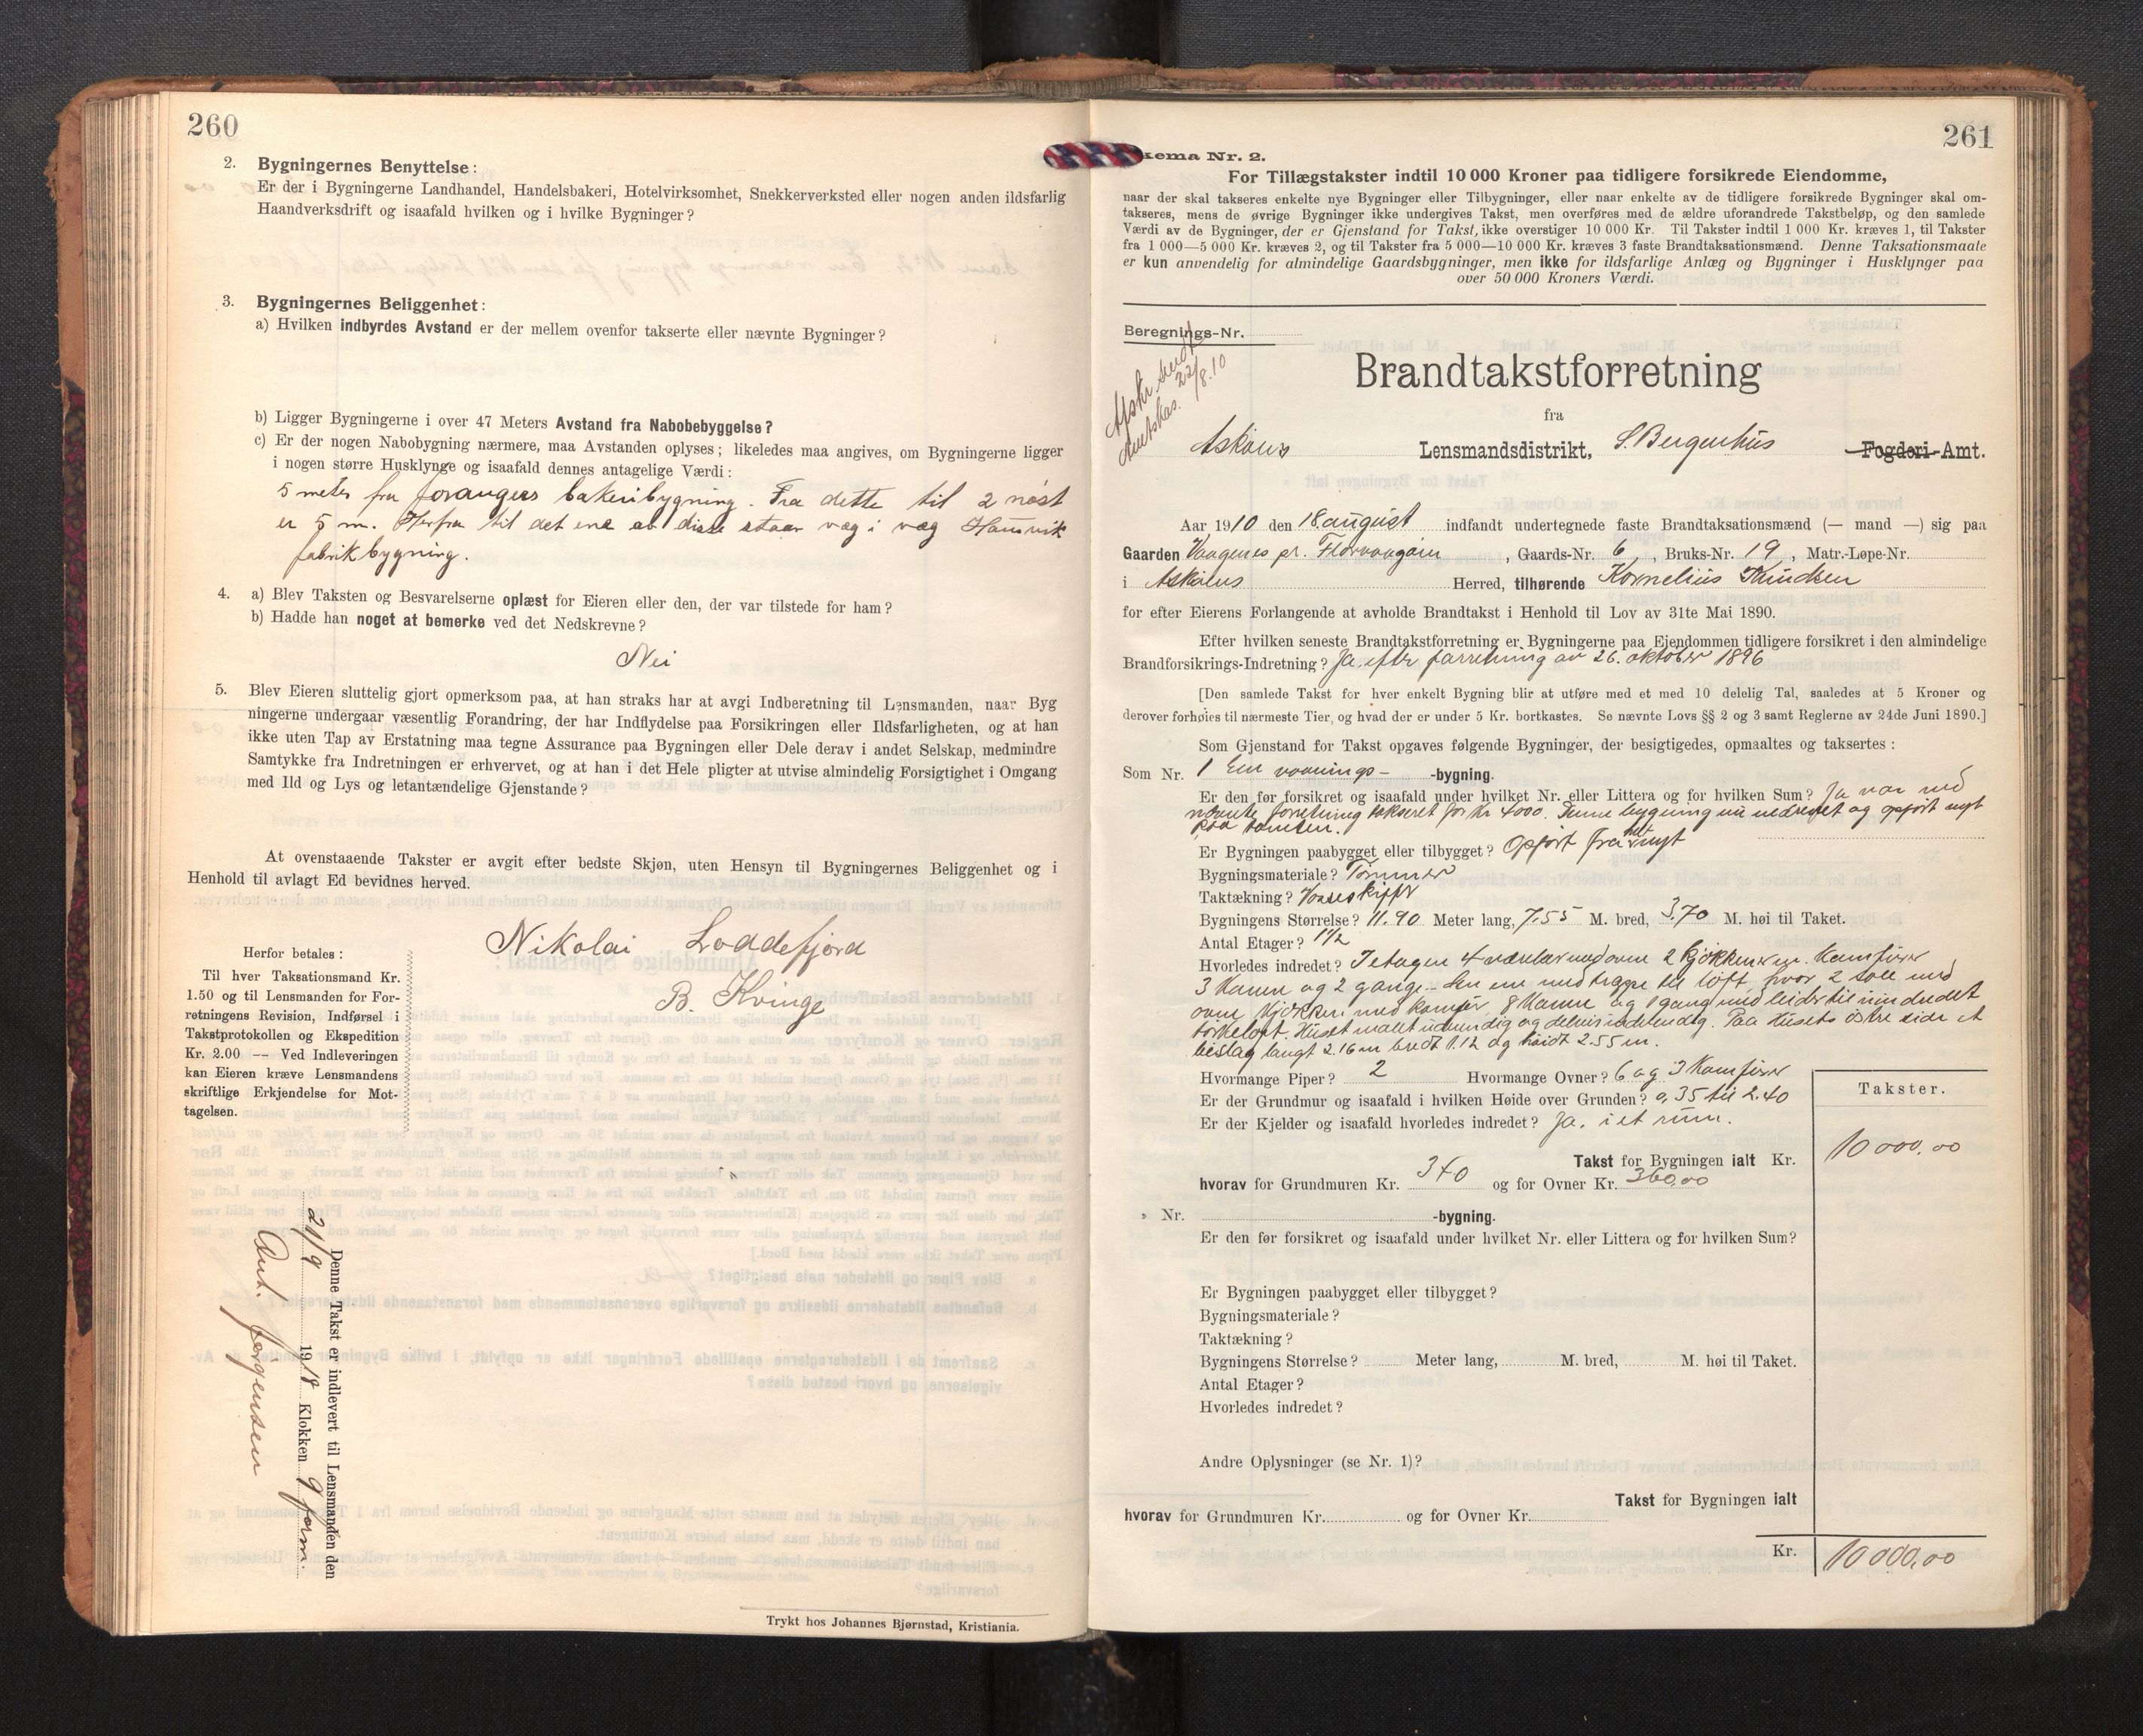 260
2. Bygningernes Benyttelse:
Er der i Bygningerne Landhandel, Handelsbakeri, Hotelvirksomhet, Snekkerverksted eller nogen anden ildsfarlig
Haandverksdrift og isaafald hvilken og i hvilke Bygninger?
3. Bygningernes Beliggenhet:
a) Hvilken indbyrdes Avstand er der mellem ovenfor takserte eller nævnte Bygninger?
b) Ligger Bygningerne i over 47 Meters Avstand fra Nabobebyggelse?
c) Er der nogen Nabobygning nærmere, maa Avstanden oplyses; likeledes maa angives, om Bygningerne ligger
i nogen større Husklynge og isaafald dennes antagelige Værdi:
5 meter fra bakeribygning. Fra dette til 2 nøst
er 5 m. Herfra til det ene ab disse staar væg i væg Hamrvik
fabrikbygning.
4. a) Blev Taksten og Besvarelserne oplæst for Eieren eller den, der var tilstede for ham?
b) Hadde han noget at bemerke ved det Nedskrevne?
Nei
5. Blev Eieren sluttelig gjort opmerksom paa, at han straks har at avgi Indberetning til Lensmanden, naar Byg
ningerne undergaar væsentlig Forandring, der har Indflydelse paa Forsikringen eller Ildsfarligheten, og at han
ikke uten Tap av Erstatning maa tegne Assurance paa Bygningen eller Dele derav i andet Selskap, medmindre
Samtykke fra Indretningen er erhvervet, og at han i det Hele pligter at utvise almindelig Forsigtighet i Omgang
med Ild og Lys og letantændelige Gjenstande?
At ovenstaaende Takster er avgit efter bedste Skjøn, uten Hensyn til Bygningernes Beliggenhet og i
Henhold til avlagt Ed bevidnes herved.
Nikolai Loddefjord
B. Kvinge
Herfor betales:
Til hver Taksationsmand Kr.
1.50 og til Lensmanden for For-
retningens Revision, Indførsel i
Takstprotokollen og Ekspedition
Kr. 2.00 — Ved Indleveringen
kan Eieren kræve Lensmandens
skriftlige Erkjendelse for Mot-
tagelsen.
Denne Takst er indlevert til Lensmanden den
21/9 1918 Klokken 9 form.
Ant. Jørgensen
Trykt hos Johannes Bjørnstad, Kristiania.
261
kema Nr. 2.
For Tillægstakster indtil 10 000 Kroner paa tidligere forsikrede Eiendomme,
naar der skal takseres enkelte nye Bygninger eller Tilbygninger, eller naar enkelte av de tidligere forsikrede Bygninger skal om-
takseres, mens de øvrige Bygninger ikke undergives Takst, men overføres med de ældre uforandrede Takstbeløp, og den samlede
Værdi av de Bygninger, der er Gjenstand for Takst, ikke overstiger 10 000 Kr. Til Takster indtil 1 000 Kr. kræves 1, til Takster
fra 1 000—5 000 Kr. kræves 2, og til Takster fra 5 000—10 000 Kr. kræves 3 faste Brandtaksationsmænd. Denne Taksationsmaate
er kun anvendelig for almindelige Gaardsbygninger, men ikke for ildsfarlige Anlæg og Bygninger i Husklynger paa
over 50 000 Kroners Værdi.
Beregnings-Nr.
Afskr. sendt
Amtskas. 22/8.10
Brandtakstforretning
fra
Askøens Lensmandsdistrikt, S. Bergenhus Fogderi-Amt.
Aar 1910 den 18 august indfandt undertegnede faste Brandtaksationsmænd (— mand —) sig paa
Gaarden Vaagenes pr. Florvaagøen, Gaards-Nr. 6, Bruks-Nr. 19, Matr.-Løpe-Nr.
i Askøens Herred, tilhørende Kornelius Knudsen
for efter Eierens Forlangende at avholde Brandtakst i Henhold til Lov av 31te Mai 1890.
Efter hvilken seneste Brandtakstforretning er Bygningerne paa Ejendommen tidligere forsikret i den almindelige
Brandforsikrings-Indretning? Ja. efter forretning av 26. oktober 1896
[Den samlede Takst for hver enkelt Bygning blir at utføre med et med 10 delelig Tal, saaledes at 5 Kroner og
derover forhøies til nærmeste Tier, og hvad der er under 5 Kr. bortkastes. Se nævnte Lovs §§ 2 og 3 samt Reglerne av 24de Juni 1890.]
Som Gjenstand for Takst opgaves følgende Bygninger, der besigtigedes, opmaaltes og taksertes:
Som Nr. 1 Em vaanings- -bygning.
Er den før forsikret og isaafald under hvilket Nr. eller Littera og for hvilken Sum? Ja var ved
nævnte forretning takseret for Kr 4000. Denne bygning nu nedrevet og opført nyt
paa tomten.
Er Bygningen paabygget eller tilbygget? Opført fra nyt
Bygningsmateriale? Tømmer
Taktækning? Vosseskiffr
Bygningens Størrelse? 11.90 Meter lang, 7.55 M. bred, 3.70 M. høi til Taket.
Antal Etager? 1½
Hvorledes indredet? I etagen 4 værelser med ovne 2 kjøkkener m. Kamfirer
3 Kamre og 2 gange. Den ene med trappe til loft, hvor 2 soll med
ovne Kjøkken med komfir, 8 Kamre og 1 gang med leider til uindredet
tørkeloft. Huset malet udvendig og delvis indvendig. Paa Husets østre side et
bislag langt 2.16 m bredt 1.12 og høidt 2.55 m.
Hvormange Piper? 2 Hvormange Ovner? 6 og 3 Komfirer
Er der Grundmur og isaafald i hvilken Høide over Grunden? 0,35 til 2.40
Er der Kjelder og isaafald hvorledes indredet? Ja. i et rum.
Takster.
Takst for Bygningen ialt Kr. 10 000,00
hvorav for Grundmuren Kr. 340 og for Ovner Kr. 360,00
» Nr. -bygning.
Er den før forsikret og isaafald under hvilket Nr. eller Littera og for hvilken Sum?
Er Bygningen paabygget eller tilbygget?
Bygningsmateriale?
Taktækning?
Bygningens Størrelse? Meter lang, M. bred, M. høi til Taket.
Antal Etager?
Hvorledes indredet?
Andre Oplysninger (se Nr. 1)?
Takst for Bygningen ialt
hvorav for Grundmuren Kr. og for Ovner Kr.
Kr. 10 000,00